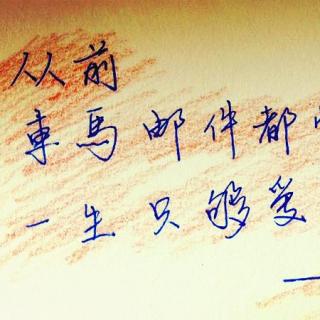 从前
車馬邮件都
一生只够爱